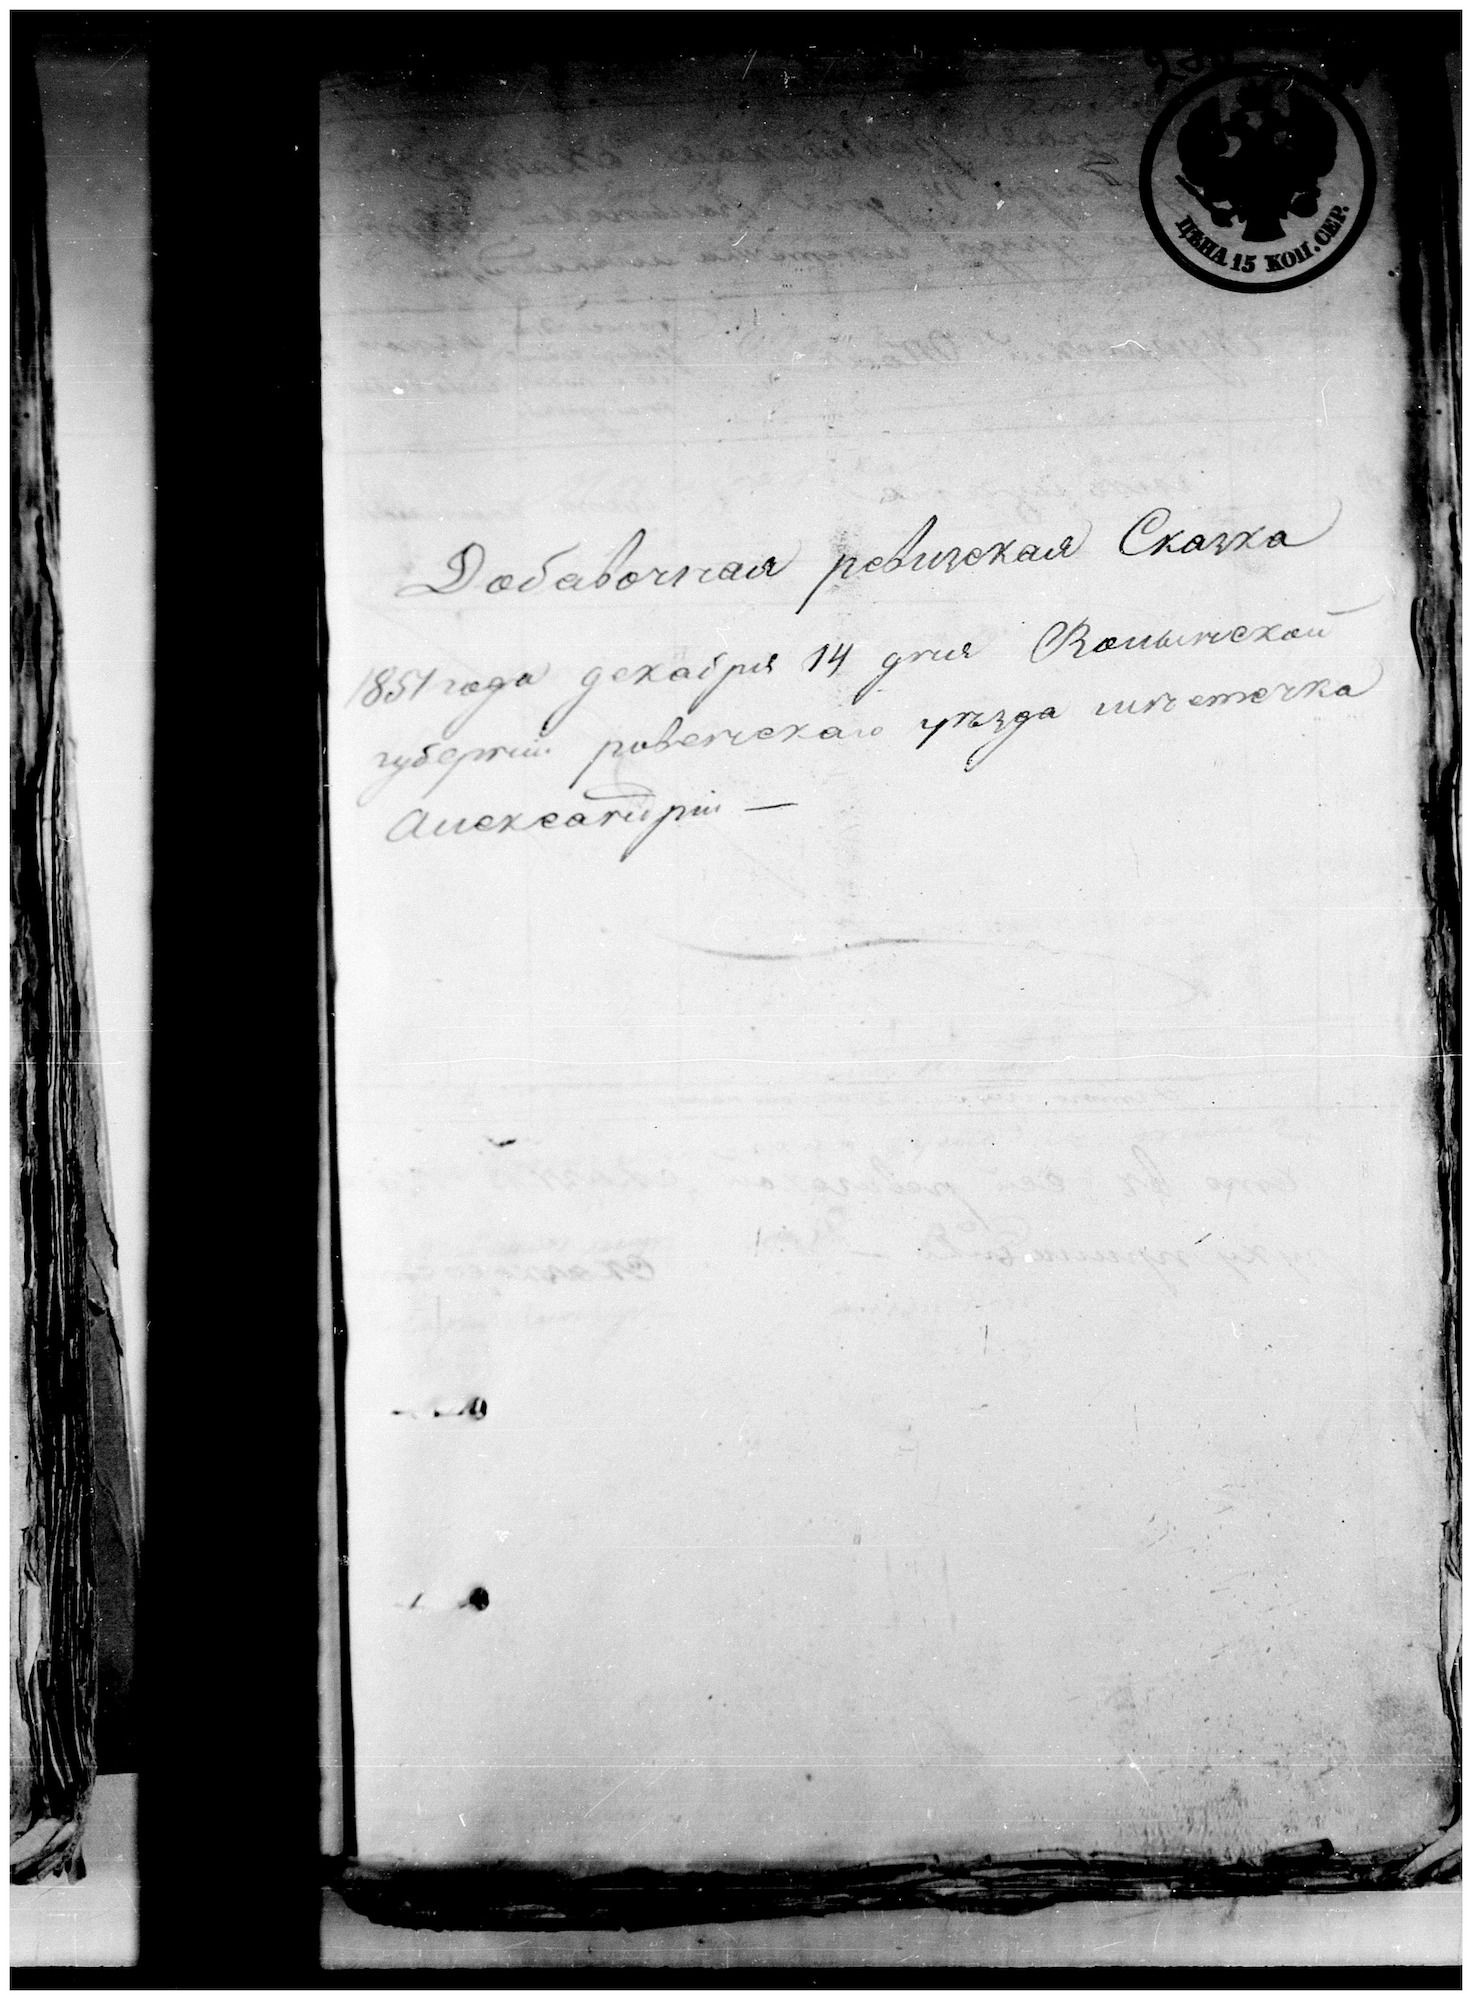 ЦѢНА 15 КОП. СЕР.
Добавочная ревизская Сказка
1851 года декабря 14 дня Волынской
губерніи ровенскаго уѣзда мѣстечка
Александріи —